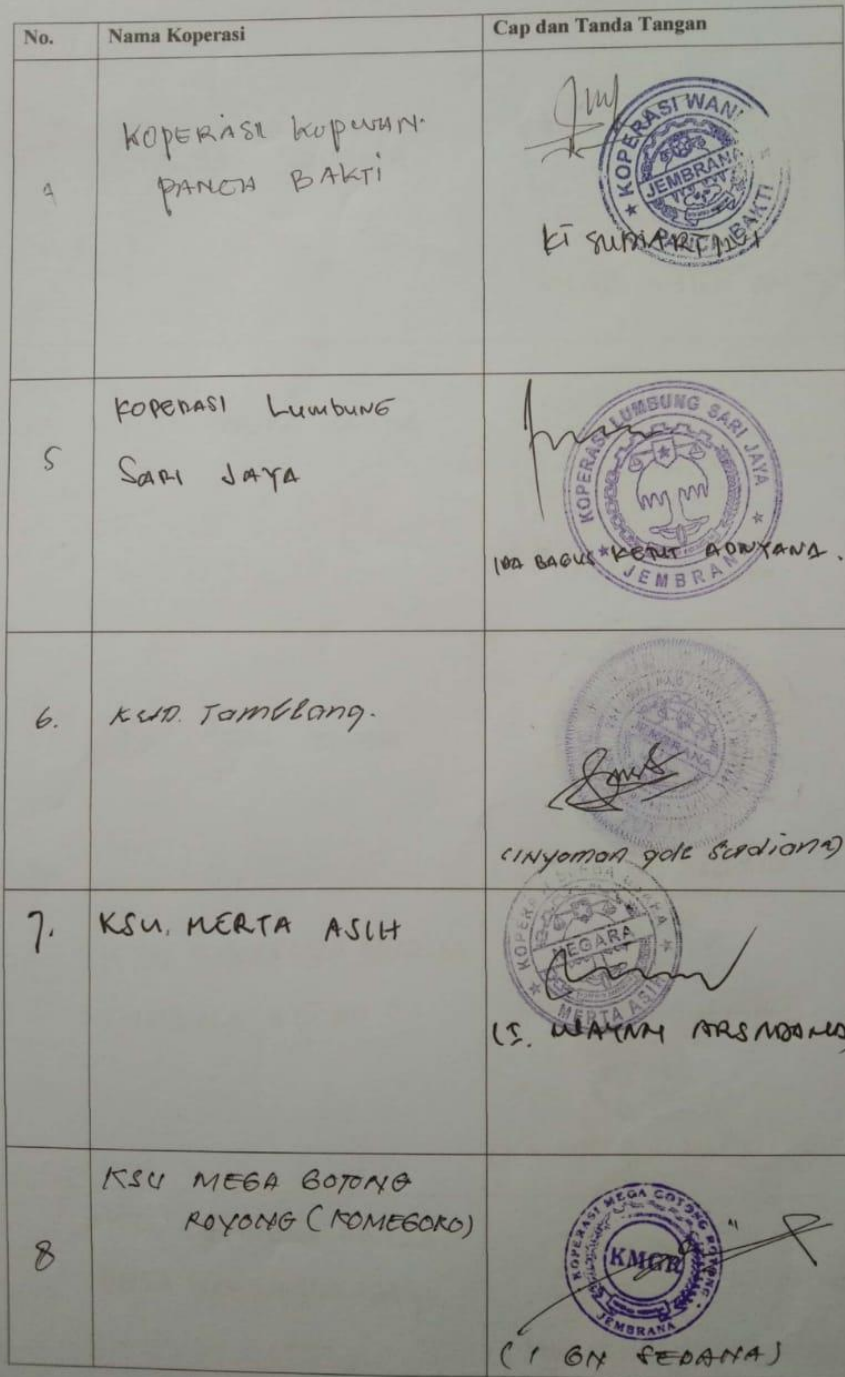 No. Nama Koperasi Cap dan Tanda Tangan
4 KOPERASI KOPWAN
PANCA BAKTI
KOPERASI WANI
JEMBRANA
PANCA BAKTI
KT SUDIARTINI
5 KOPERASI LUMBUNG
SARI JAYA
KOPERASI LUMBUNG SARI JAYA
JEMBRAN
IDA BAGUS KETUT ADNYANA.
6. KUD. Tamblang.
JEMBRANA
(INyoman gde Sudiana)
7. KSU. MERTA ASIH
KOPERASI SERBA USAHA
NEGARA
MERTA ASIH
(I. WAYAN
8 KSU MEGA GOTONG
ROYONG (KOMEGORO)
KOPERASI MEGA GOTONG ROYONG
KMGR
JEMBRANA
(I GN SEDANA)